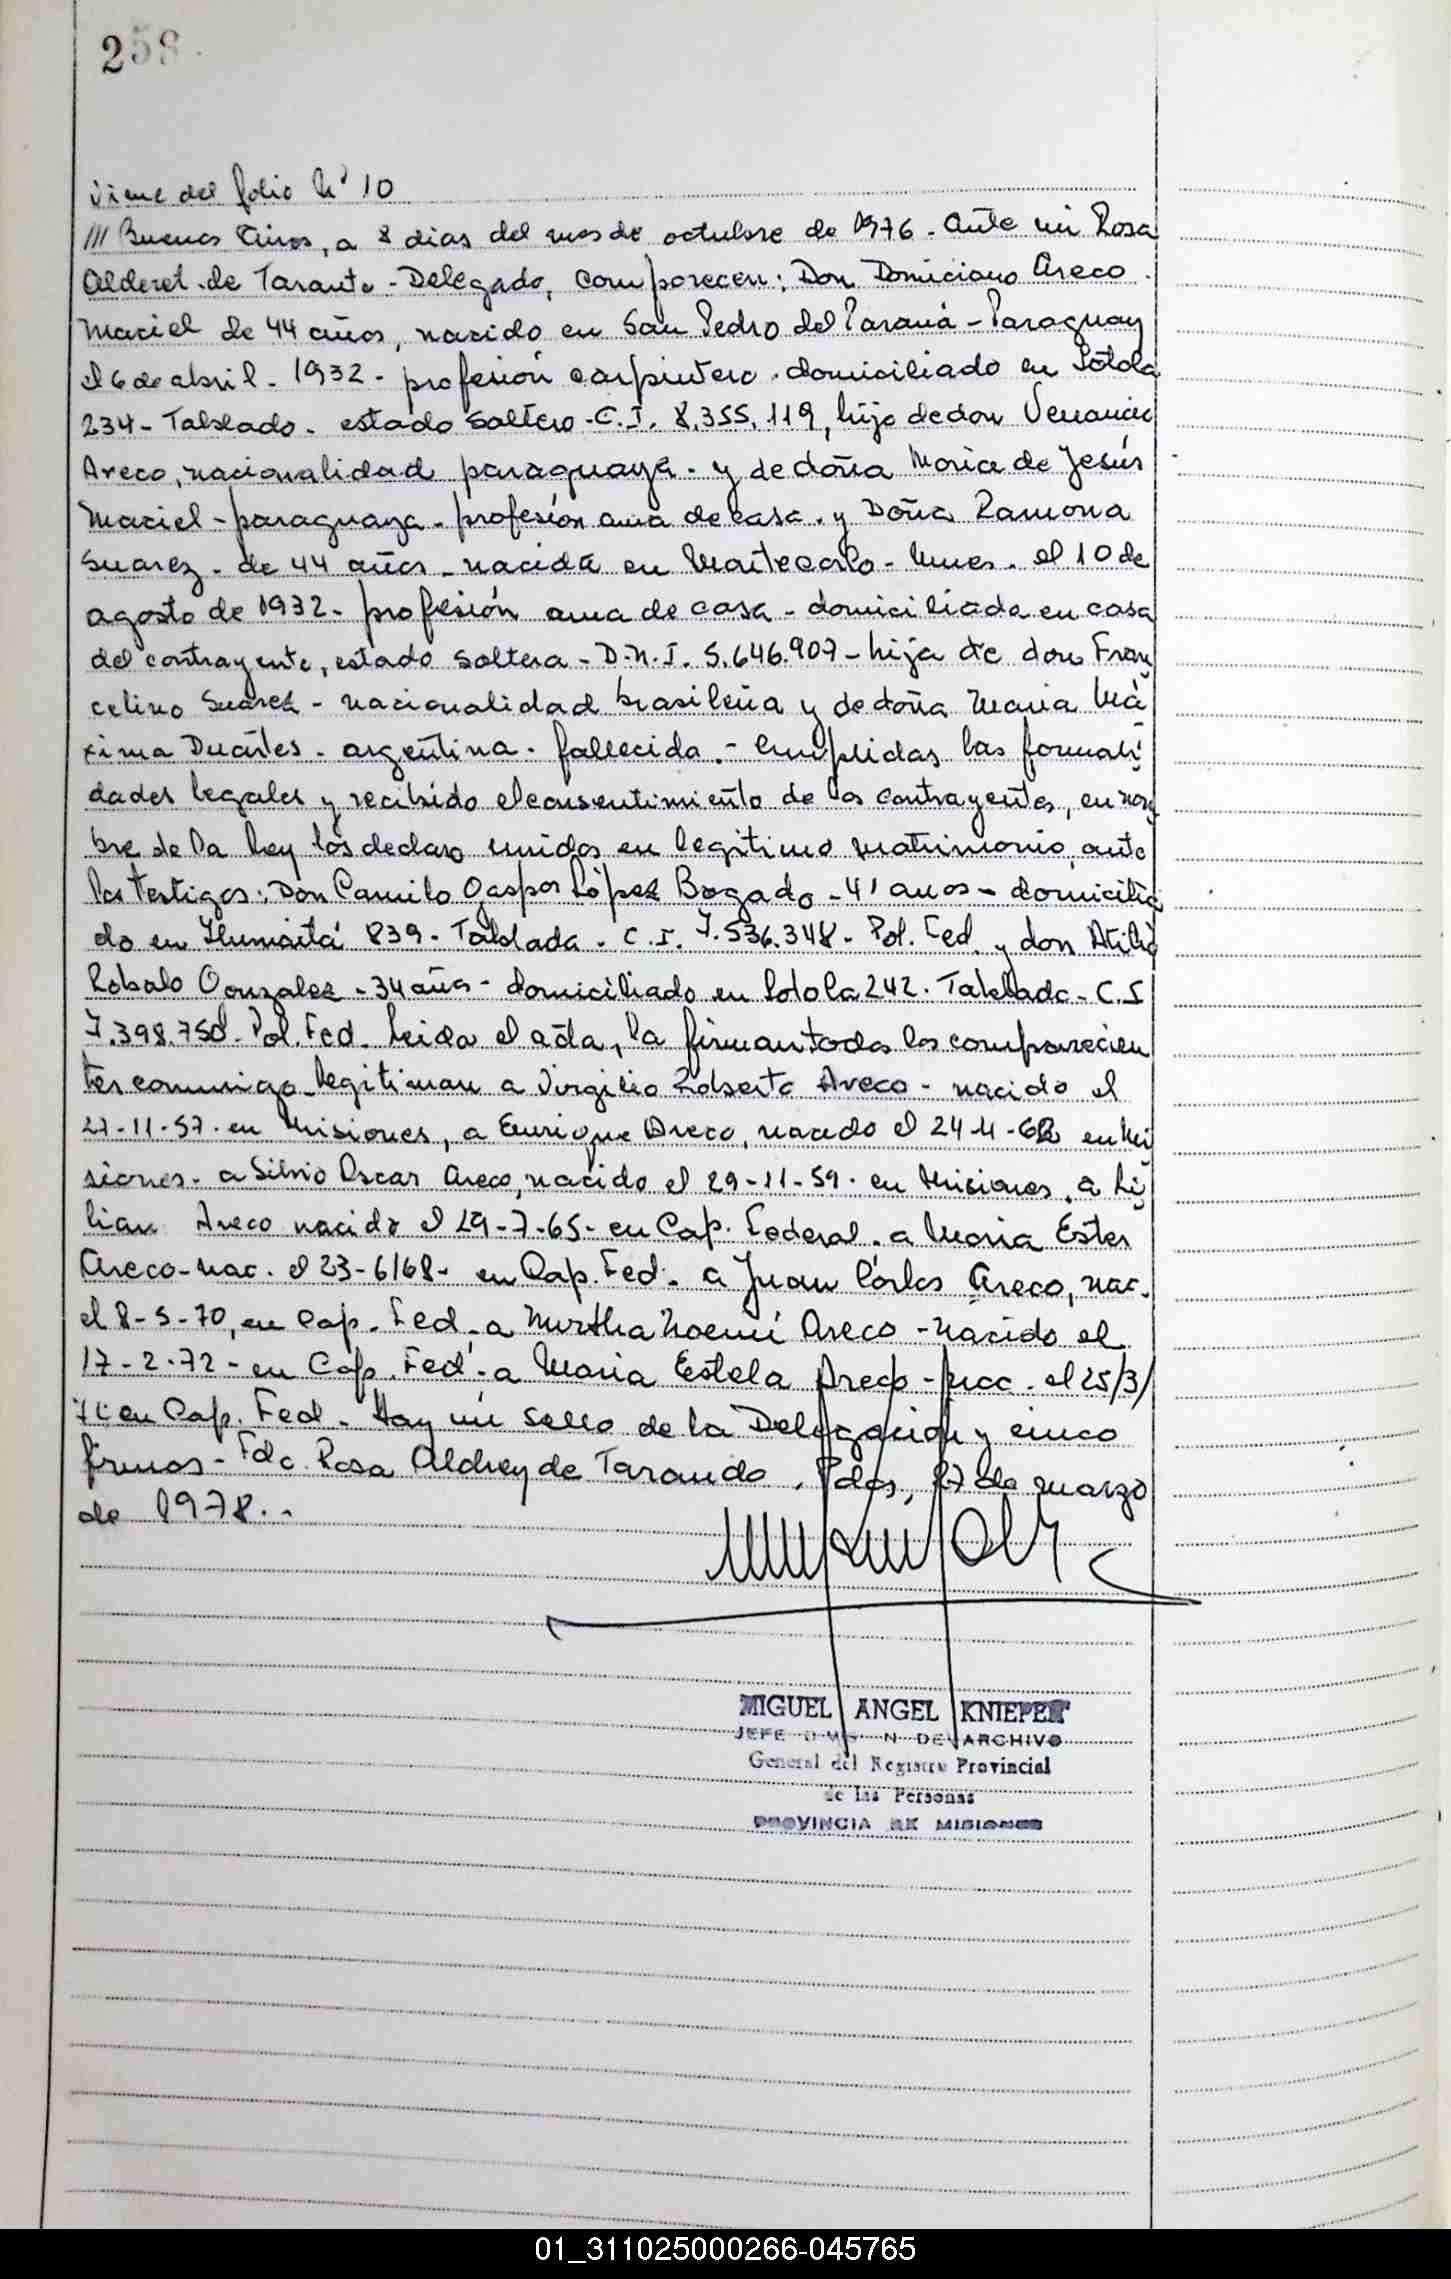 258.
viene del folio Nº 10
/// Buenos Aires, a 8 dias del mes de octubre de 1976 - ante mi Rosa
Alderet de Taranto - Delegado, comparecen: Don Domiciano Areco
Maciel de 44 años, nacido en San Pedro del Paraná - Paraguay
el 6 de abril - 1932 - profesión carpintero - domiciliado en
234 - Tablado - estado soltero - C.I. 8.355.119, hijo de don Venancio
Areco, nacionalidad paraguaya - y de doña Maria de Jesús
Maciel - paraguaya - profesión ama de casa - y Doña Ramona
Suarez - de 44 años - nacida en Montecarlo - Mnes. el 10 de
agosto de 1932 - profesión ama de casa - domiciliada en casa
del contrayente, estado soltera - D.N.I. 5.646.907 - hija de don Fran
celino Suarez - nacionalidad brasileña y de doña Maria Má
xima Duartes - argentina - fallecida. - Cumplidas las formali
dades legales y recibido el consentimiento de los contrayentes, en nom
bre de la ley los declaro unidos en legitimo matrimonio, ante
los testigos: Don Camilo Gaspar López Bogado - 41 anos - domicilia
do en Humaitá 839 - Tablada - C.I. 7.536.348 - Pol. Fed y don Atilio
Robalo Gonzalez - 34 años - domiciliado en 242. Tablada - C.I
7.398.750 - Pol. Fed. Leida el acta, la firman todos los comparecien
tes conmigo - legitiman a Virgilio Roberto Areco - nacido el
27-11-57 - en Misiones, a Enrique Areco, nacido el 24-11-62 en Mi
siones - a Silvio Oscar Areco, nacido el 29-11-59 - en Misiones. a Li
lian Areco nacida el 29-7-65 - en Cap. Federal. a Maria Ester
Areco - nac. el 23-6/68 - en Cap. Fed. - a Juan Carlos Areco, nac.
el 8-5-70, en Cap. Fed. a Mirtha Noemi Areco - nacido el
17-2-72 - en Cap. Fed. - a Maria Estela Areco - nac. el 25/3/
en Cap. Fed. - Hay un sello de la Delegación y cinco
firmas - Fdo. Rosa de Tarando. Pdas, 27 de marzo
de 1978. -
MIGUEL ANGEL KNIEPERT
JEFE DIVISION DE ARCHIVO
General del Registro Provincial
de las Personas
PROVINCIA DE MISIONES
01_311025000266-045765